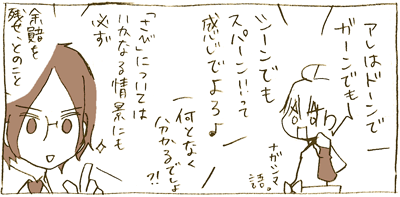 アレはドーンで
ガーンでもー
ツーンでも
スパーン!!って
感じでよろ♪
ナガシマ
語。
何となく
分かるでしょ
?!
「さび」については
いかなる情景にも
必ず
余韻を
残せ、とのこと